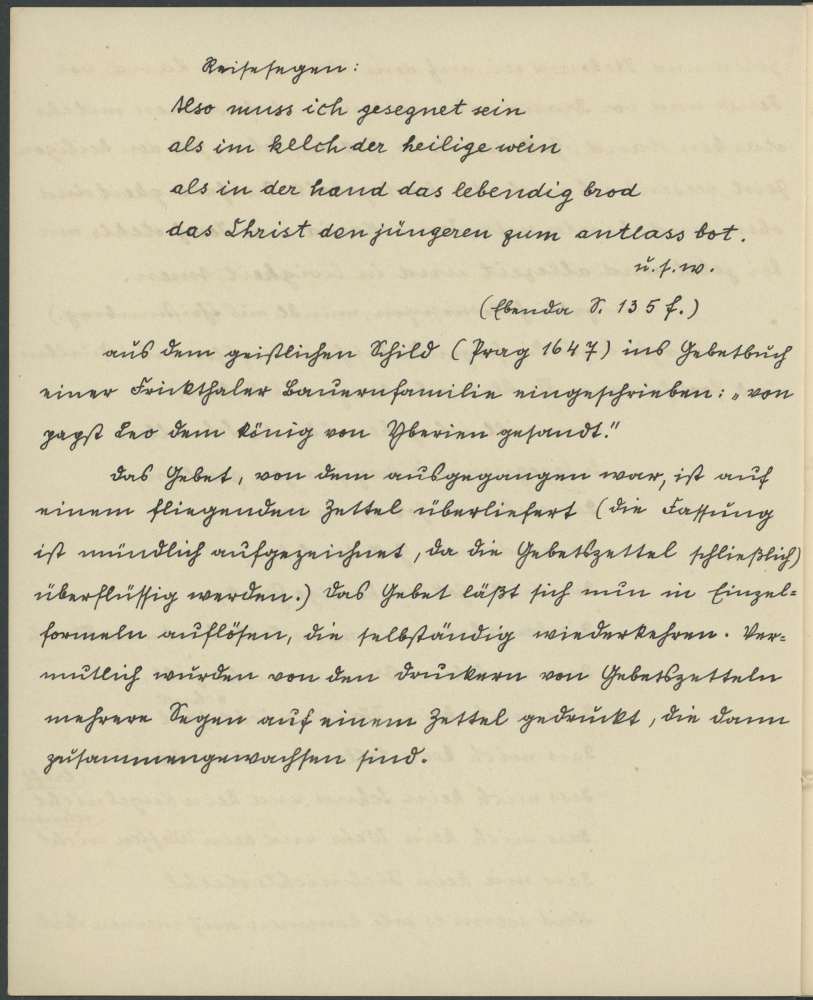 Reisesegen:
Also muss ich gesegnet sein
als im kelch der heilige wein
als in der hand das lebendig brod
das Christ den jüngeren zum antlass bot.
u.s.w.
(Ebenda S. 135 f.)
aus dem geistlichen Schild (Prag 1647) ins Gebetbuch
einer Frickthaler Bauernfamilie eingeschrieben: „von
papst Leo dem König von Yberien gesandt."
Das Gebet, von dem ausgegangen war, ist auf
einem fliegenden Zettel überliefert (die Fassung
ist mündlich aufgezeichnet, da die Gebetszettel schließlich)
überflüssig werden.) Das Gebet läßt sich nun in Einzel=
formeln auflösen, die selbständig wiederkehren. Ver=
mutlich wurden von den Druckern von Gebetszetteln
mehrere Segen auf einem Zettel gedruckt, die dann
zusammengewachsen sind.